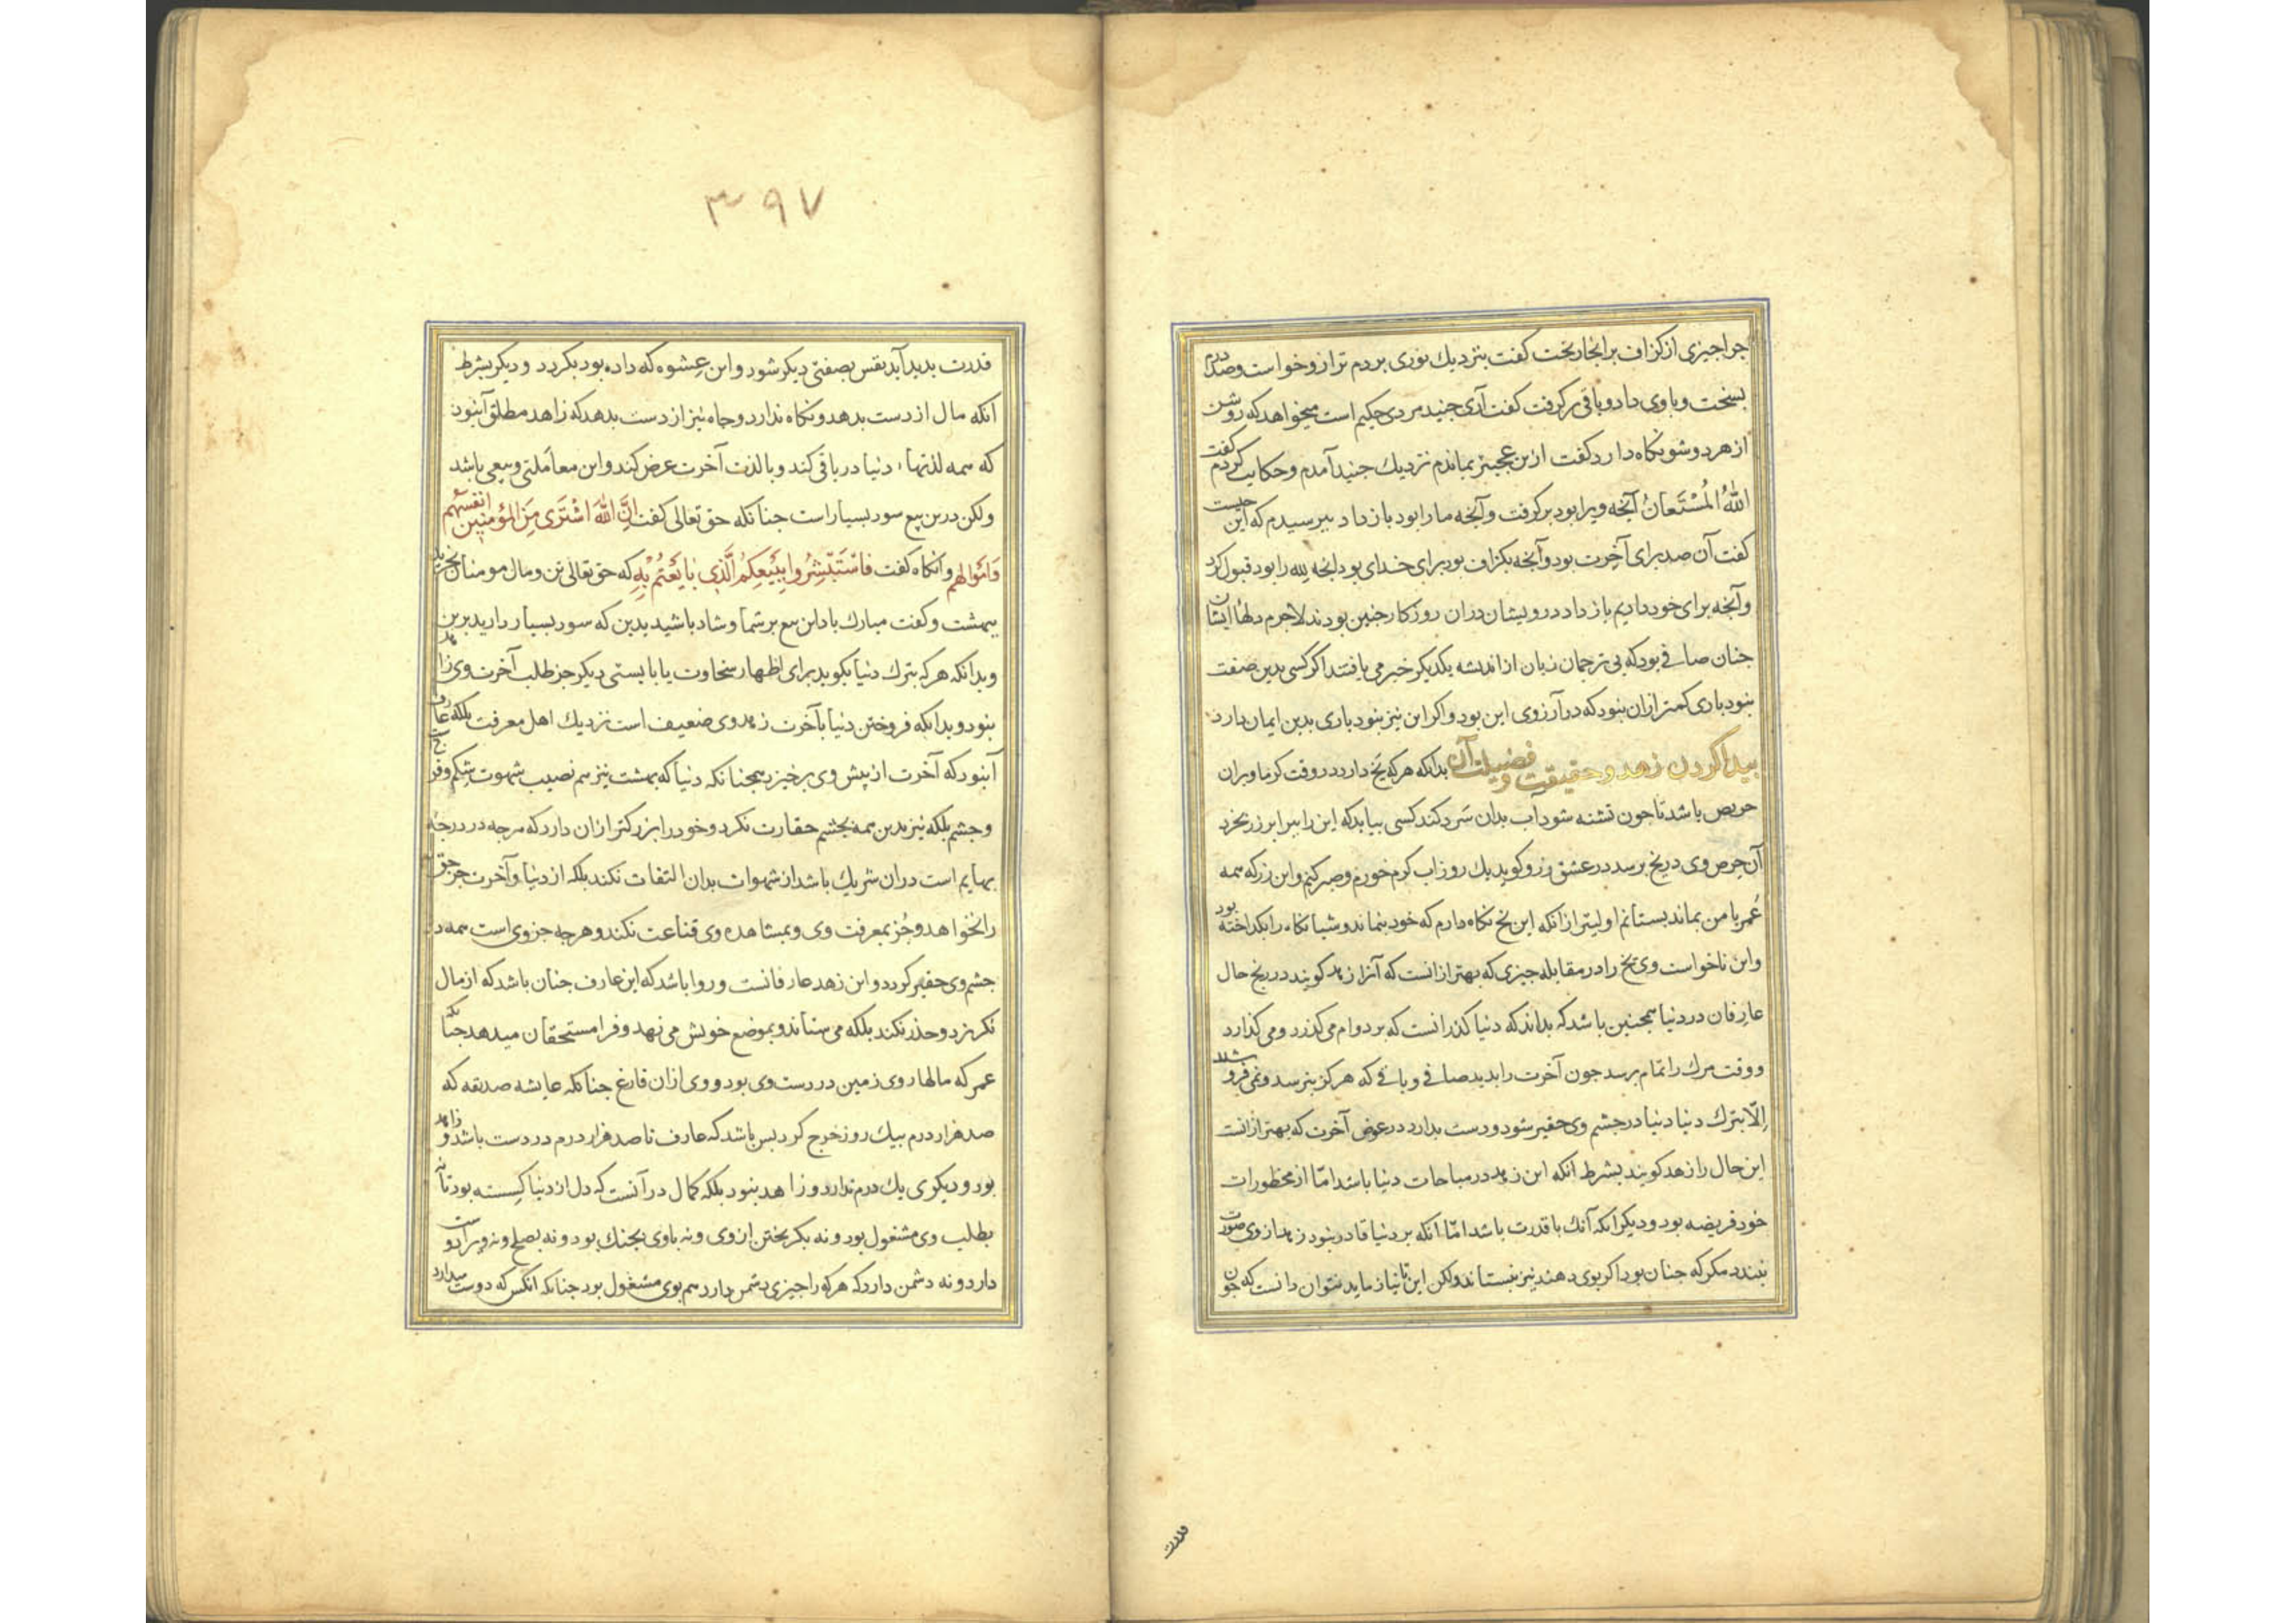 جرا جیزی از کزاف برانجا ریخت کفت بنزدیك نوری بردم ترازو خواست و صد درم
بسنجت و باوی داد و باقی برکرفت کفت آری جنید مردی حکیم است میخواهد که روشن
از هر دو سو نکاه دارد کفت ازین عجبتر بماندم نزدیك جنید آمدم و حکایت کردم کفت
اللهُ المُسْتَعانُ آنجه ویرا بود برکرفت و آنجه ما را بود باز داد ببرسیدم که این جیست
کفت آن صد برای آخرت بود و آنجه بکزاف بود برای خدای بود انجه لله را بود قبول کرد
و آنجه برای خود دادیم باز داد درویشان دران روزکار جنین بودند لاجرم دلهاء ایشان
جنان صافی بود که بی ترجمان زبان از اندیشه یکدیکر خبر می یافتند اکر کسی بدین صفت
نبود باری کمتر ازان نبود که در آرزوی این بود و اکر این نیز نبود باری بدین ایمان دارد
بیدا کردن زهد و حقیقت و فضیلت آن بدانکه هرکه یخ دارد در وقت کرما و بران
حریص باشد تا جون تشنه شود آب بدان سرد کند کسی بیاید که این را ببرابر زر بخرد
آن حرص وی در یخ برسد در عشق زر و کوید یك روز آب کرم خورم و صبر کنم و این زر که همه
عُمر با من بماند بستانم اولیتر ازانکه این یخ نکاه دارم که خود نماند و شبانکاه را بکداخته بود
و این ناخواست وی یخ را در مقابله جیزی که بهتر ازانست که آنرا زهد کویند در یخ حال
عارفان در دنیا همجنین باشد که بداند که دنیا کذرانست که بر دوام می کذرد و می کدازد
و وقت مرك را تمام برسد جون آخرت را بدید صافی و باقی که هرکز بنرسد و نمی فروشند
إلّا بترك دنیا دنیا در جشم وی حقیر شود و دست بدارد در عوض آخرت که بهتر ازانست
این حال را زهد کویند بشرط آنکه این زهد در مباحات دنیا باشد امّا از محظورات
خود فریضه بود و دیکر آنکه آنك با قدرت باشد امّا آنکه بر دنیا قادر نبود زهد از وی صورت
نبندد مکر که جنان بود اکر بوی دهند نیز نستاند ولکن این تا نیازماید نتوان دانست که جون
قدرت
۳۹۷
قدرت بدید آید نفس بصفتی دیکر شود و این عشوه که داده بود بکردد و دیکر بشرط
آنکه مال از دست بدهد و نکاه ندارد و جاه نیز از دست بدهد که زاهد مطلق آن بود
که همه لذتهاء دنیا در باقی کند و با لذت آخرت عرض کند و این معاملتی و بیعی باشد
ولکن درین بیع سود بسیار است جنانکه حق تعالی کفت إِنَّ اللهَ اشْتَرَی مِنَ المؤمنین انفسهم
وَاَمْوَالهم وانکاه کفت فَاسْتَبْشِرُوا بِبَیْعِکمُ الَّذِی بَایَعْتُمْ بِهِ که حق تعالی تن و مال مومنان بخرید
ببهشت و کفت مبارك باد این بیع بر شما و شاد باشید بدین که سود بسیار دارید برین
و بدانکه هرکه بترك دنیا بکوید برای اظهار سخاوت یا بابستی دیکر جز طلب آخرت وی زاهد
نبود و بدانکه فروختن دنیا بآخرت زهدوی ضعیف است نزدیك اهل معرفت بلکه عارف
آنبود که آخرت از پیش وی برخیزد همجنانکه دنیا که بهشت نیز هم نصیب شهوت شکم و فرج است
و جشم بلکه نیز بدین همه بجشم حقارت نکرد و خود را بزرکتر ازان دارد که هرجه در درجهٔ
بهایم است دران شریك باشد از شهوات بدان التفات نکند بلکه از دنیا و آخرت جز حق
را نخواهد و جُز بمعرفت وی و بمشاهده وی قناعت نکند و هرجه جز وی است همه در
جشم وی حقیر کردد و این زهد عارفانست و روا باشد که این عارف جنان باشد که از مال
نکریزد و حذر نکند بلکه می ستاند و بموضع خویش می نهد و فرا مستحقان میدهد جنانکه
عمر که مالهاء روی زمین در دست وی بود و وی ازان فارغ جنانکه عایشه صدیقه که
صد هزار درم بیك روز خرج کرد بس باشد که عارف تا صد هزار درم در دست باشد و زاهد
بود و دیکری یك درم ندارد و زاهد نبود بلکه کمال درآنست که دل از دنیا کسسته بود تا نه
بطلب وی مشغول بود و نه بکریختن ازوی و نه باوی بجنك بود و نه بصلح و نه ویرا دوست
دارد و نه دشمن دارد که هرکه را جیزی دشمن دارد هم بوی مشغول بود جنانکه آنکس که دوست میدارد